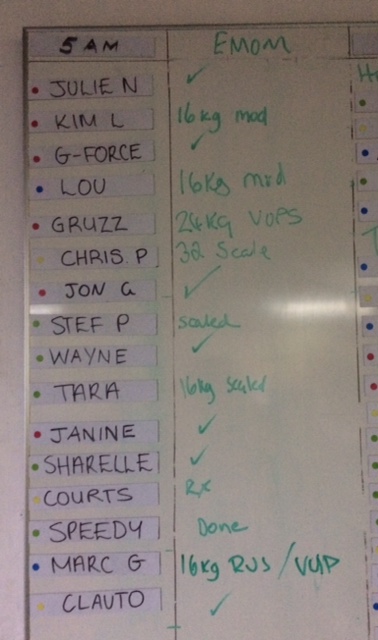 5 AM EMOM
JULIE N ✓
KIM L 16kg mod
G-FORCE ✓
LOU 16kg mod
GRUZZ 24KG VUPS
CHRIS. P 32 Scale
JON G ✓
STEF P scaled
WAYNE ✓
TARA 16kg scaled
JANINE ✓
SHARELLE ✓
COURTS Rx
SPEEDY Done
MARC G 16kg RUS / VUP
CLAUTO ✓